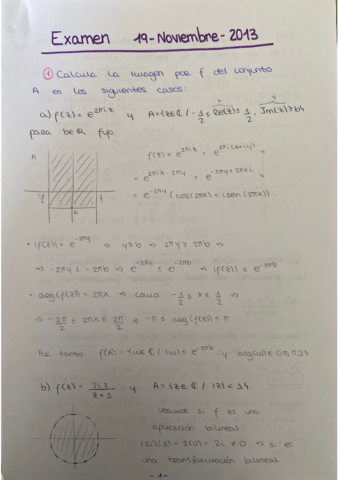 Examen 19-Noviembre-2013
① Calcula la imagen por f del conjunto
A en los siguientes casos:
a) f(z) = e^{2πiz} y A = {z ∈ ℂ / -1/2 ≤ Re(z) ≤ 1/2, Im(z) ≥ b}
para b ∈ ℝ fijo
A
f(z) = e^{2πiz} = e^{2πi(x+iy)} =
= e^{2πix - 2πy} = e^{-2πy + 2πxi} =
= e^{-2πy} (cos(2πx) + i sen(2πx))
· |f(z)| = e^{-2πy} ⇒ y ≥ b ⇒ 2πy ≥ 2πb ⇒
⇒ -2πy ≤ -2πb ⇒ e^{-2πy} ≤ e^{-2πb} ⇒ |f(z)| ≤ e^{-2πb}
· arg(f(z)) = 2πx ⇒ como -1/2 ≤ x ≤ 1/2 ⇒
⇒ -2π/2 ≤ 2πx ≤ 2π/2 ⇒ -π ≤ arg(f(z)) ≤ π
Por tanto f(A) = {w ∈ ℂ / |w| ≤ e^{-2πb} y arg(w) ∈ [-π, π]}
b) f(z) = 2iz/z+1 y A = {z ∈ ℂ / |z| < 1}
veamos si f es una
aplicación bilineal
(2i)(1) - 1(0) = 2i ≠ 0 ⇒ si es
una transformación bilineal
-1-